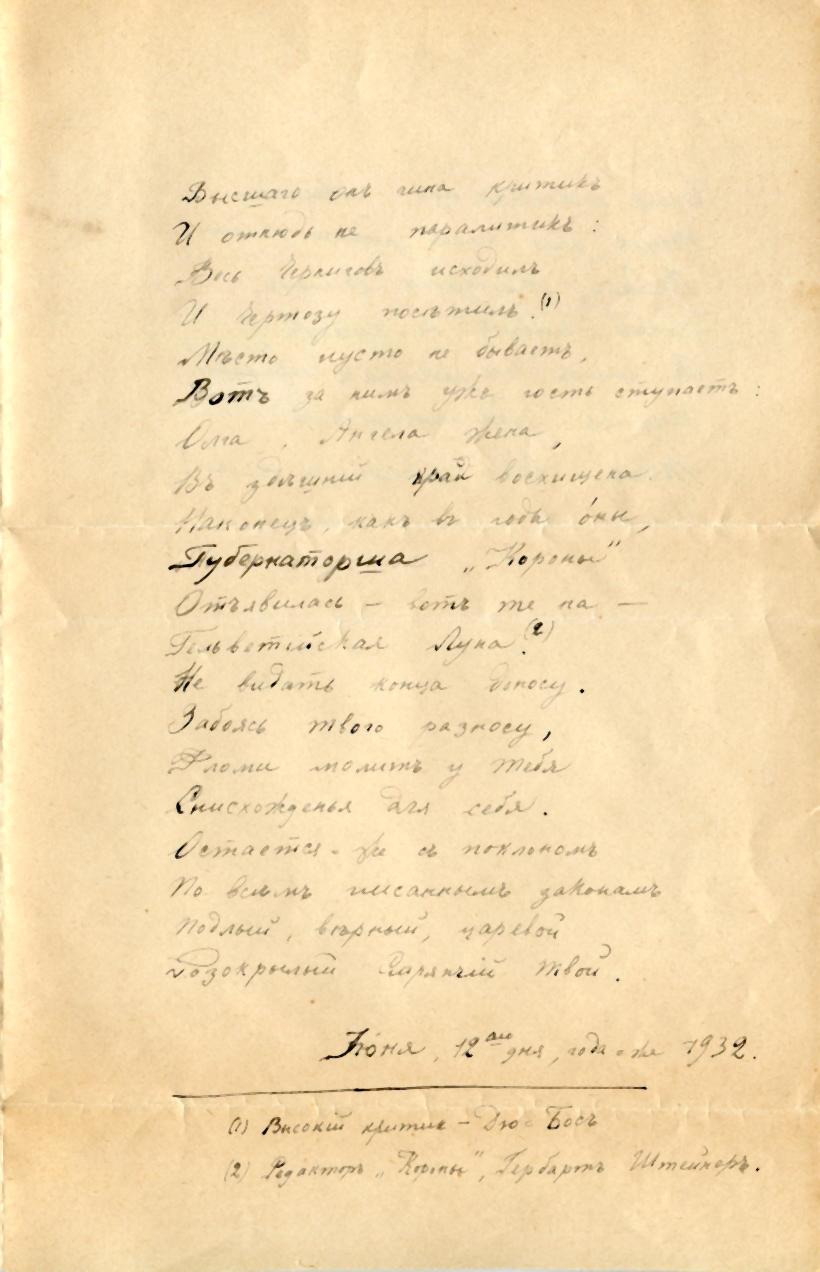 Высшаго онъ чина критикъ
И отнюдь не паралитикъ:
Весь Черниговъ исходилъ
И Чертозу посѣтилъ.(1)
Мѣсто пусто не бываетъ,
Вотъ за нимъ уже гость ступаетъ:
Ольга, Ангела жена,
Въ здѣшній край восхищена.
Наконецъ, какъ въ годы о́ны,
Губернаторша „Короны"
Отъявилась — вотъ те на —
Гельветійская Луна.(2)
Не видать конца доносу.
Забоясь твого разносу,
молитъ у тебя
Снисхожденья для себя.
Остается-же съ поклономъ
По всѣмъ писаннымъ законамъ
Подлый, вѣрный, царевой
Розокрылый твой.
Іюня, 12аго дня, года-же 1932.
(1) Высокій критик — Дю-Босъ
(2) Редакторъ „Короны", Гербартъ Штейнеръ.